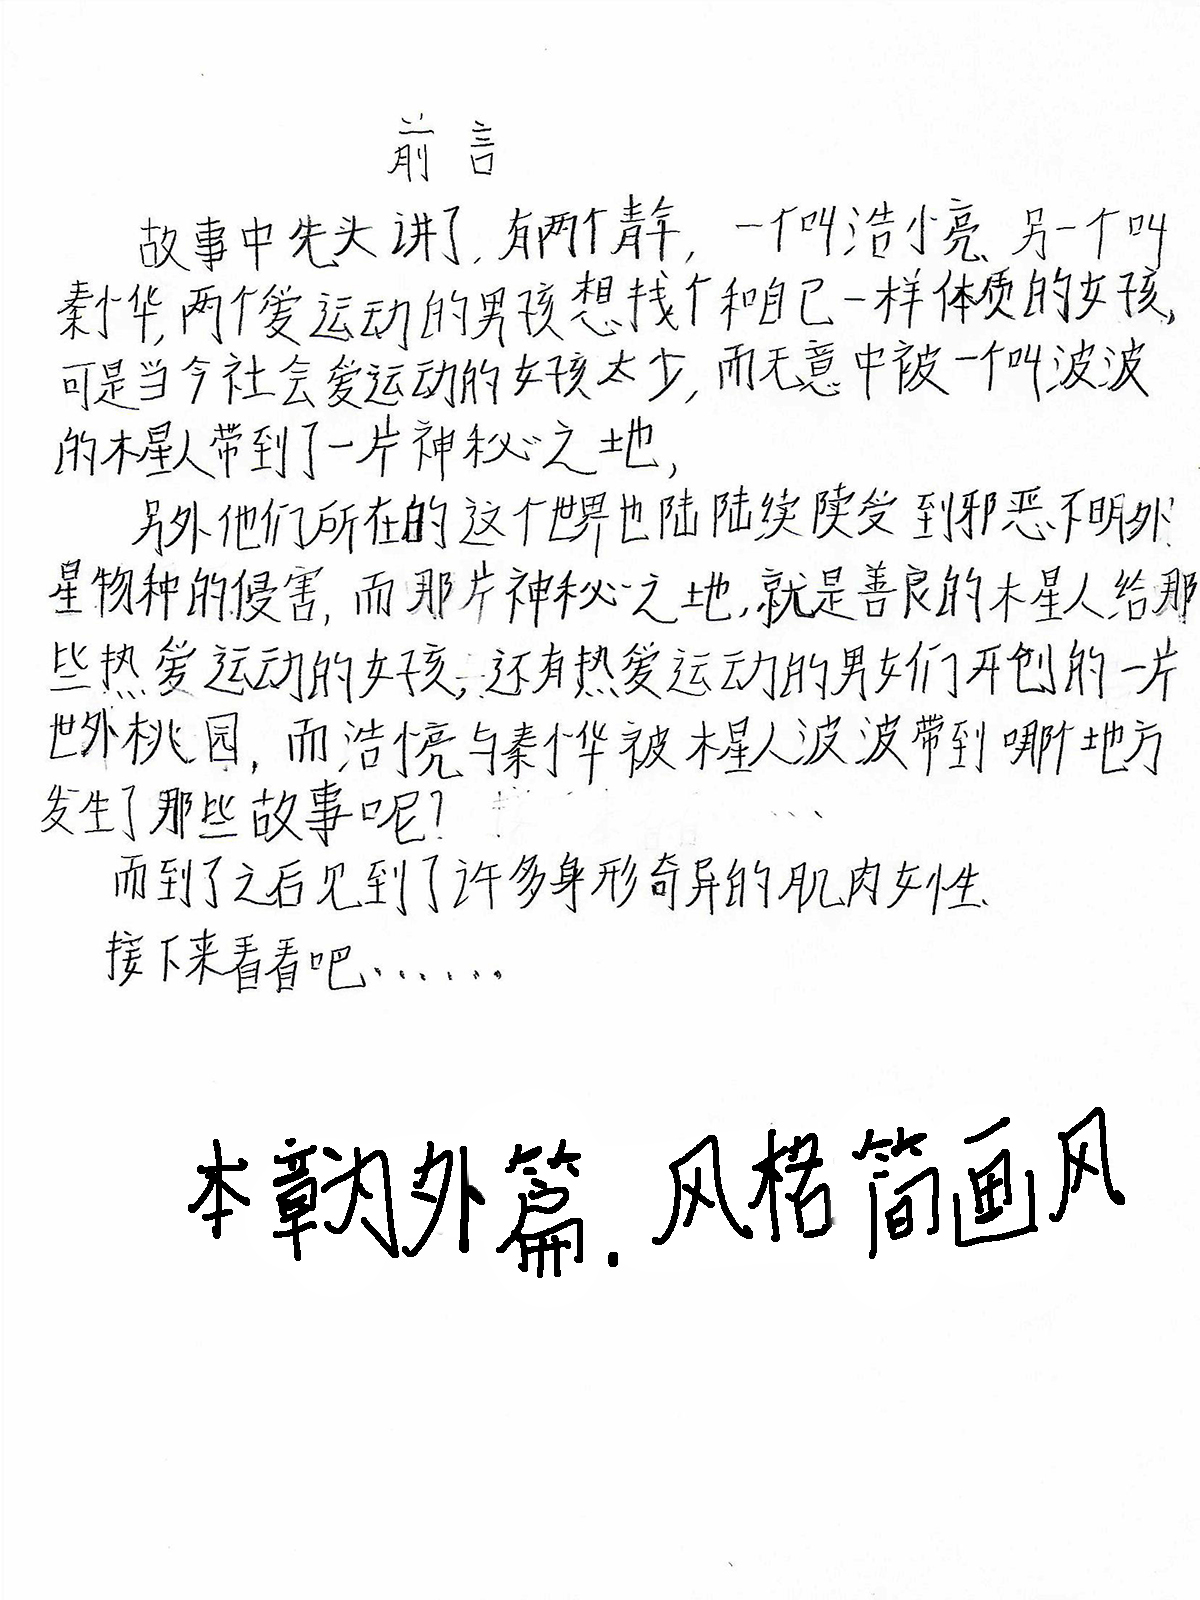 前言
故事中先头讲了,有两个青年,一个叫浩小亮、另一个叫
秦小华,两个爱运动的男孩想找个和自已一样体质的女孩,
可是当今社会爱运动的女孩太少,而无意中被一个叫波波
的木星人带到了一片神秘之地,
另外他们所在的这个世界也陆陆续续受到邪恶不明外
星物种的侵害,而那片神秘之地,就是善良的木星人给那
些热爱运动的女孩,还有热爱运动的男女们开创的一片
世外桃园,而浩小亮与秦小华被木星人波波带到哪个地方
发生了那些故事呢?
而到了之后见到了许多身形奇异的肌肉女性、
接下来看看吧......
本章为外篇.风格简画风